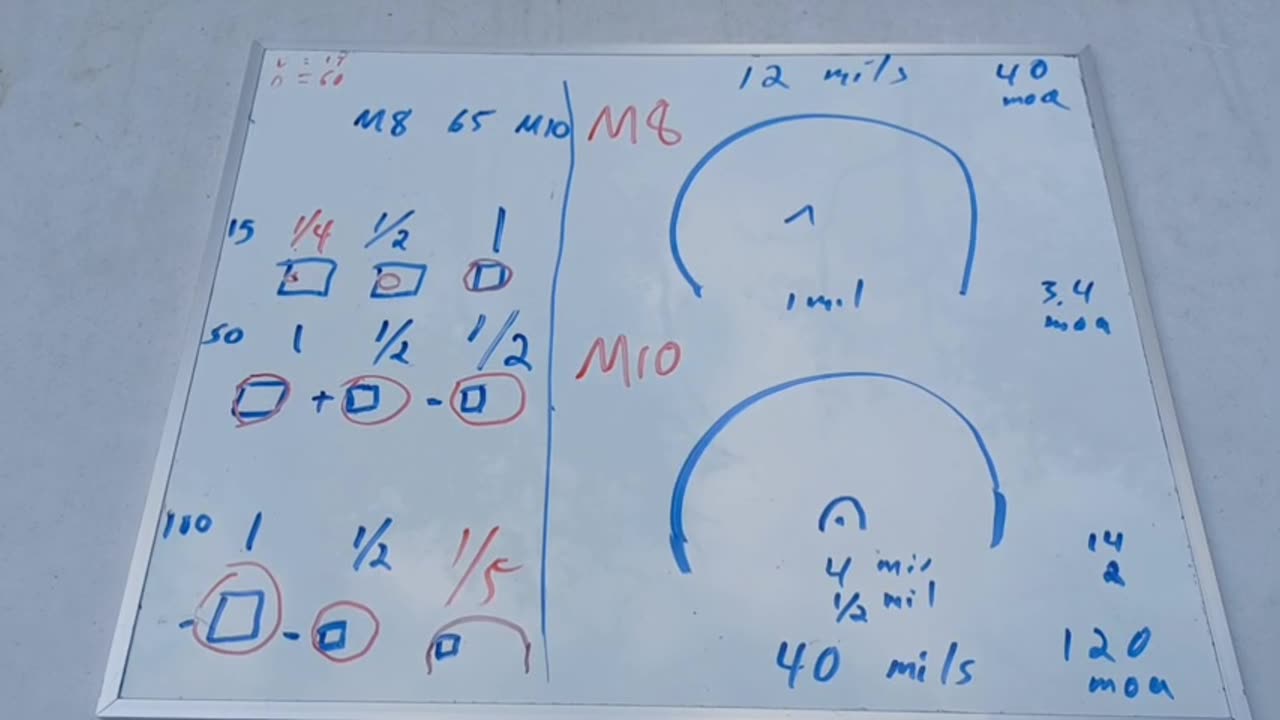 n = 60
M8 65 M10
15 1/4 1/2 1
50 1 1/2 1/2
+ -
100 1 1/2 1/5
- -
M8
12 mils 40
moa
1 mil 3.4
moa
M10
4 mil 14
1/2 mil 2
40 mils 120
moa